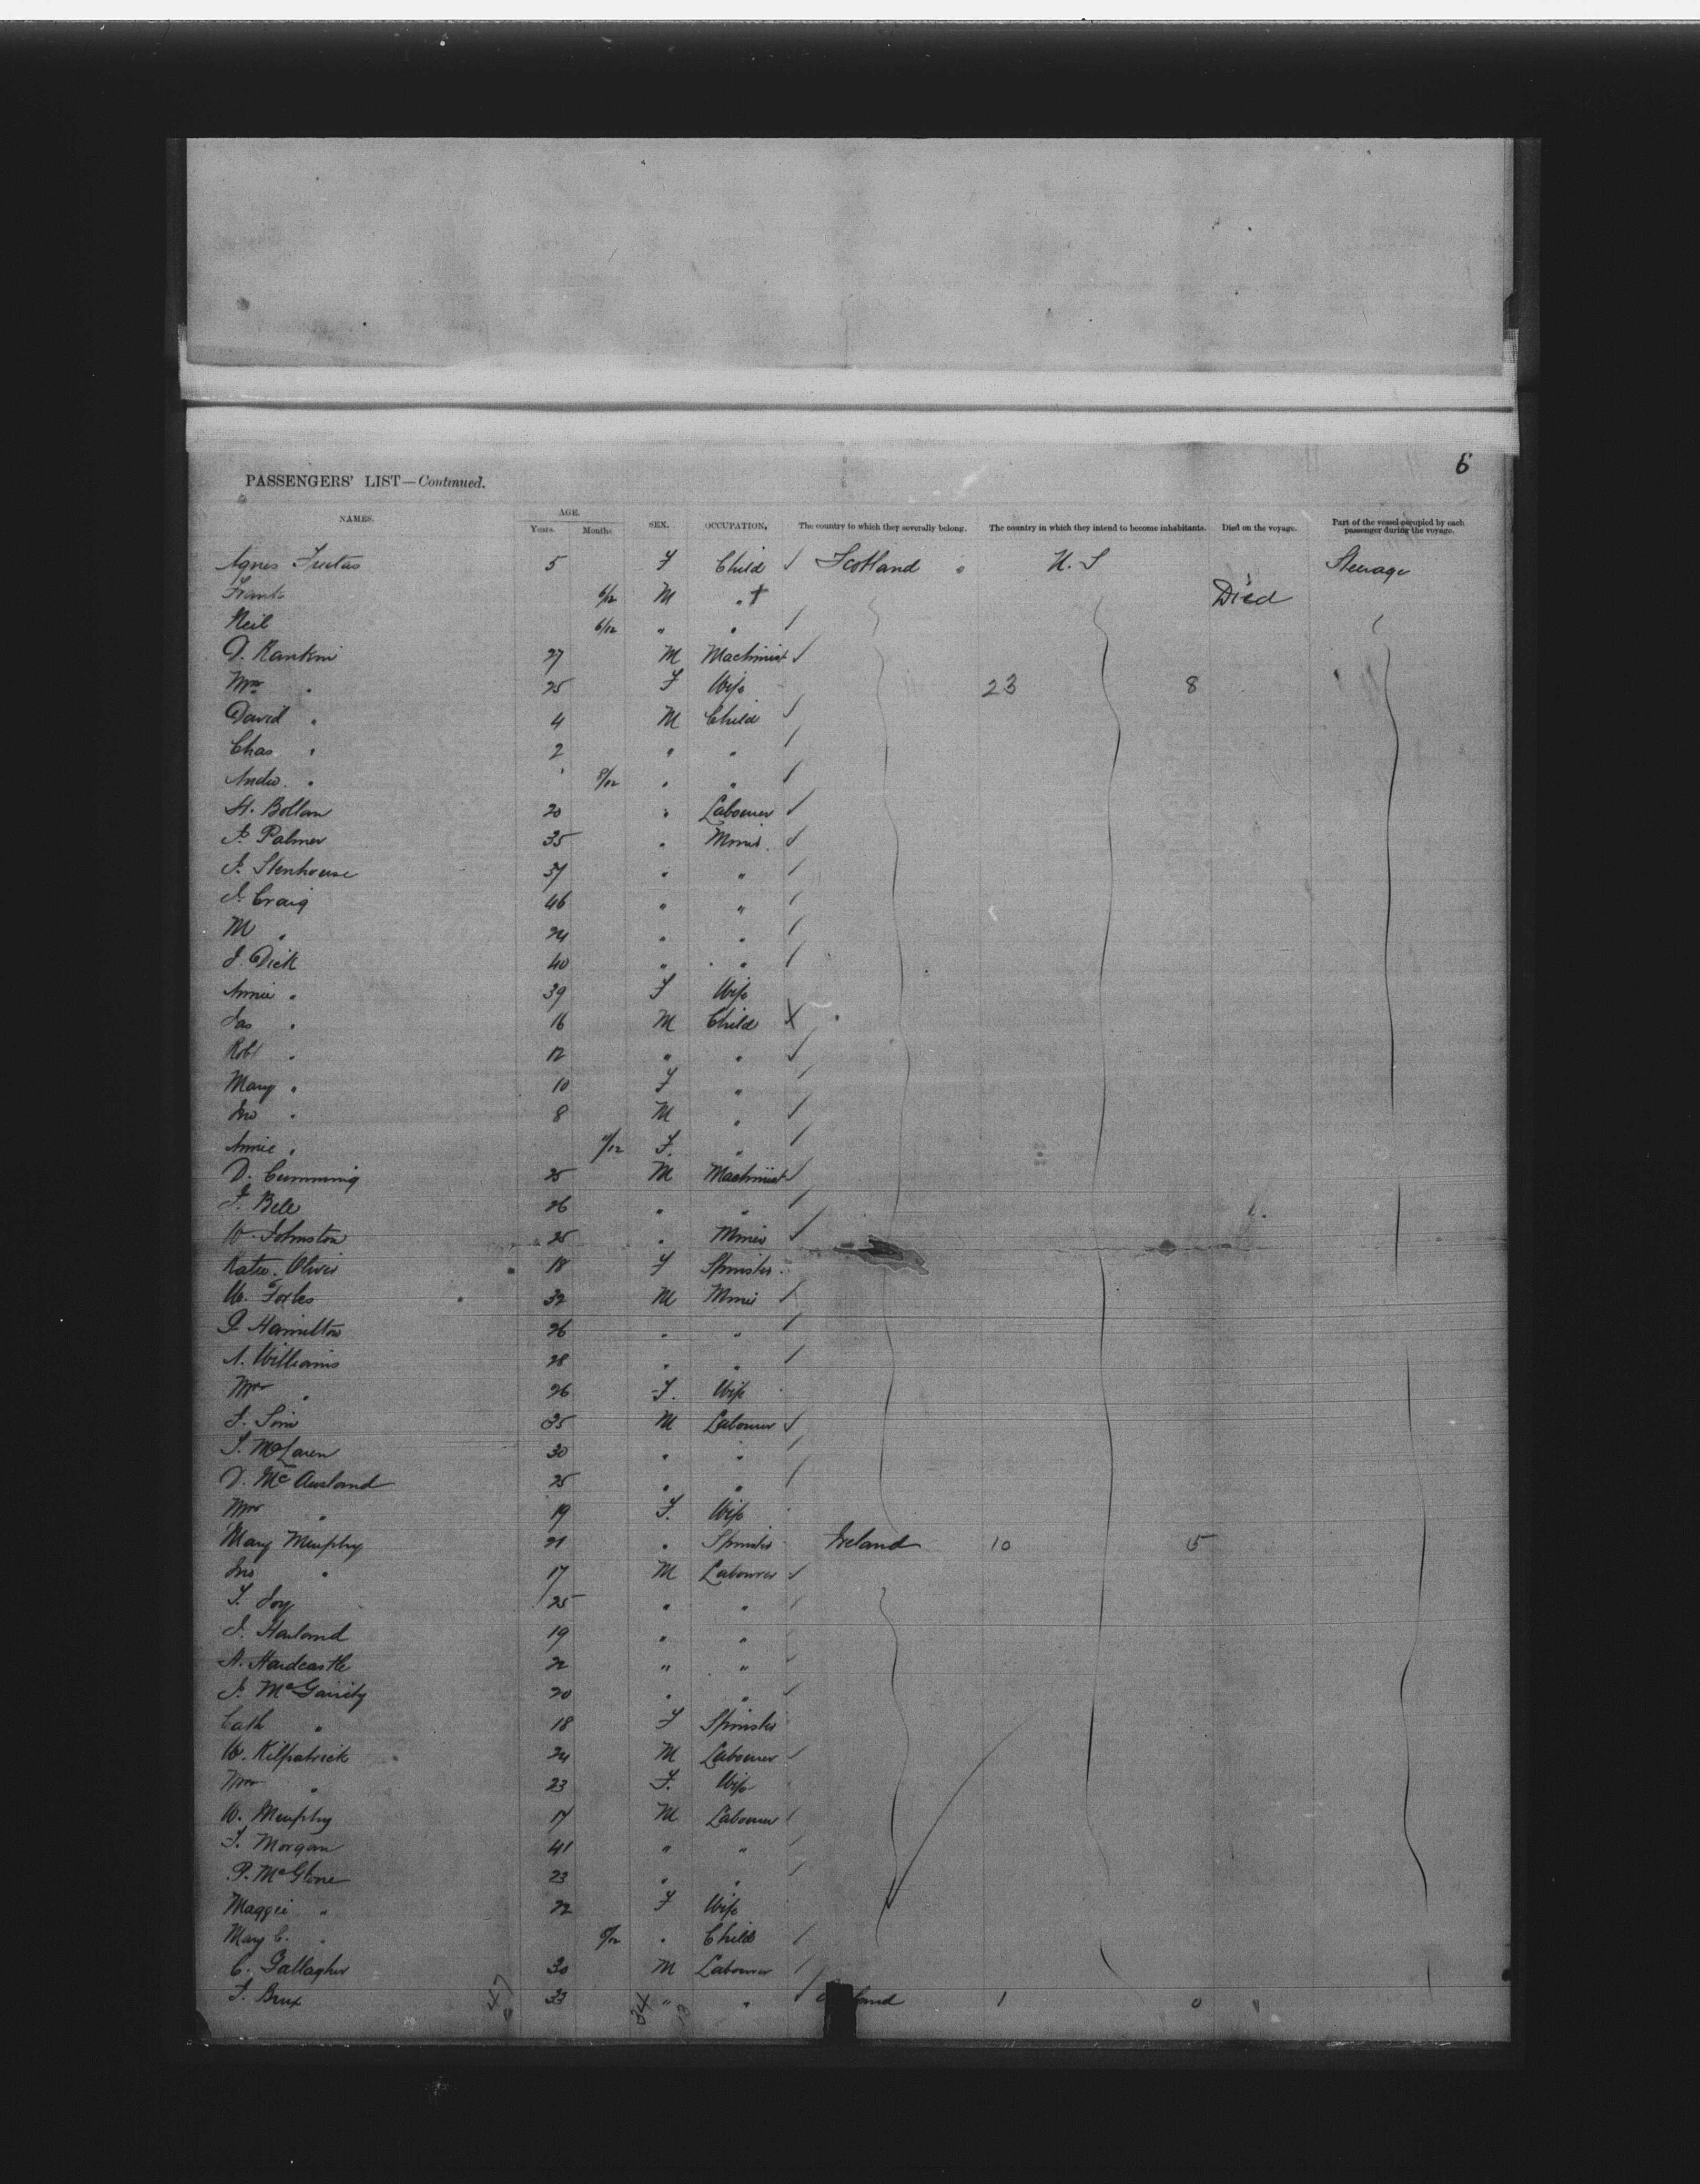 6
PASSENGERS' LIST—Continued.
NAMES. AGE. Years. Months SEX. OCCUPATION, The country to which they severally belong. The country in which they intend to become inhabitants. Died on the voyage. Part of the vessel occupied by each passenger during the voyage.
Agnes 5 F Child Scotland U.S Steerage
Frank 6/12 M " Died
Neil 6/12 " "
D. Rankin 27 M Machinist
Mrs " 25 F Wife 23 8
David " 4 M Child
Chas " 2 " "
Andw. " 8/12 " "
H. Bollan 20 " Labourer
J. Palmer 35 " Miner
J. Stenhouse 37 " "
J. Craig 46 " "
M " 24 " "
J. Dick 40 " "
Annie " 39 F Wife
Jas " 16 M Child X
Robt " 12 " "
Mary " 10 F "
Jno " 8 M "
Annie " 11/12 F. "
D. Cumming 25 M Machinist
J. Bell 26 " "
W. Johnston 25 " Miner
Kate Oliver 18 F Spinster
W. Forbes 32 M Miner
P. Hamilton 26 " "
A. Williams 28 " "
Mrs " 26 F. Wife
J. Sim 35 M Labourer
J. McLaren 30 " "
D. McAusland 25 " "
Mrs " 19 F. Wife
Mary Murphy 21 " Spinster Ireland 10 5
Jno " 17 M Labourer
T. Joy 25 " "
J. Harland 19 " "
A. Hardcastle 22 " "
J. McGarrity 20 " "
Cath " 18 F Spinster
W. Kilpatrick 24 M Labourer
Mrs " 23 F. Wife
W. Murphy 17 M Labourer
T. Morgan 41 " "
P. McGlone 23 " "
Maggie " 22 F Wife
Mary C. " " Child
C. Gallagher 30 M Labourer
33 " " 1 0
47 34 13